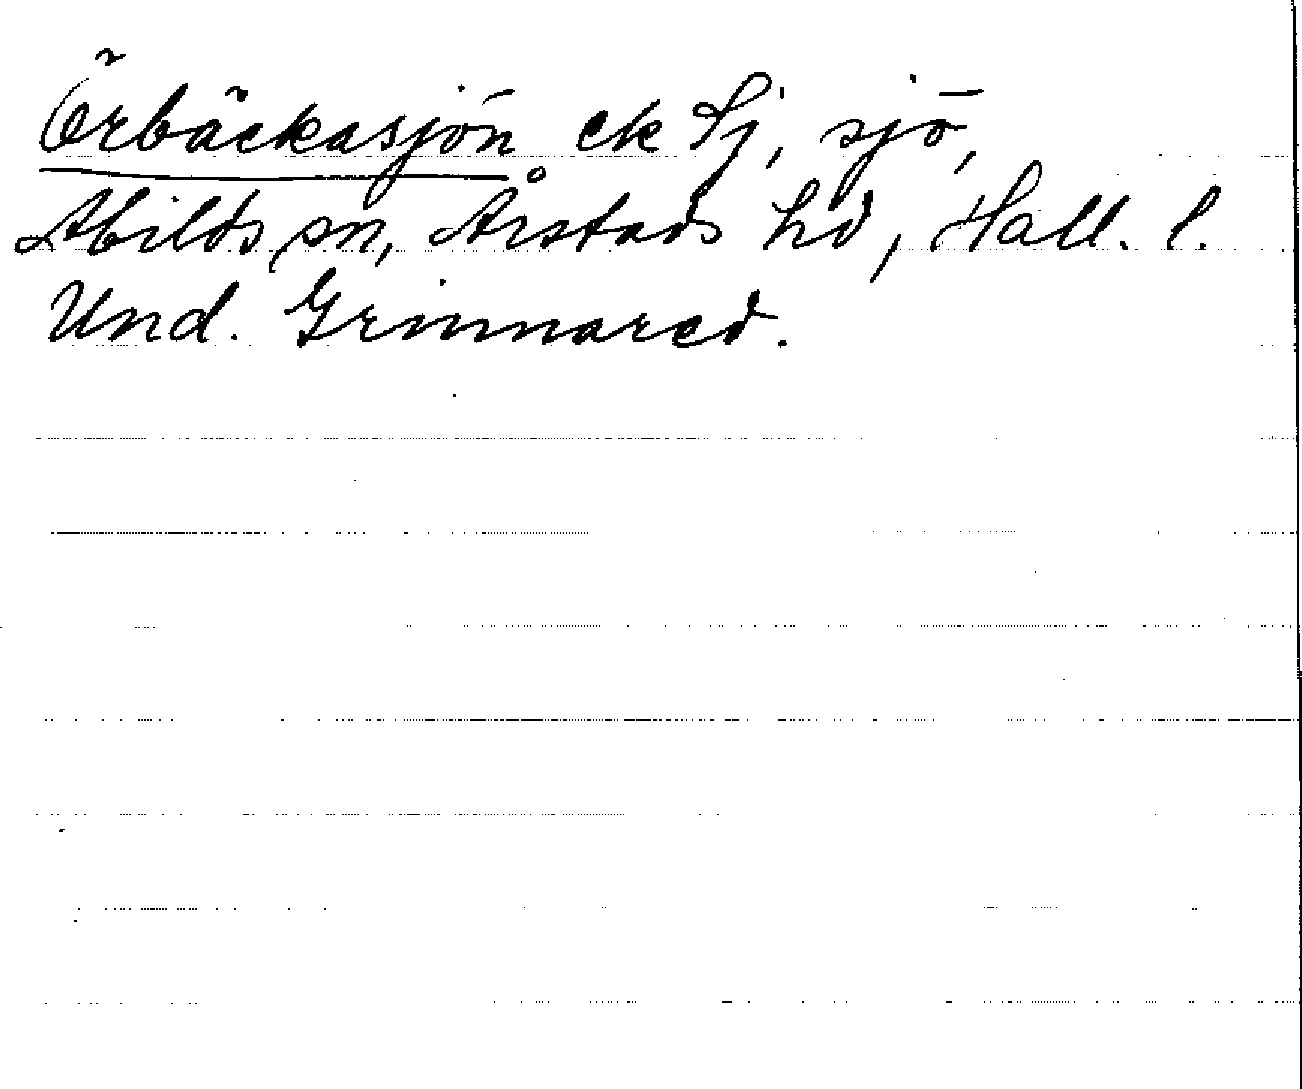 Örbäckasjön ek Sj, sjö,
Abilds sn, Årstads hd, Hall. l.
Und. Grinnared.